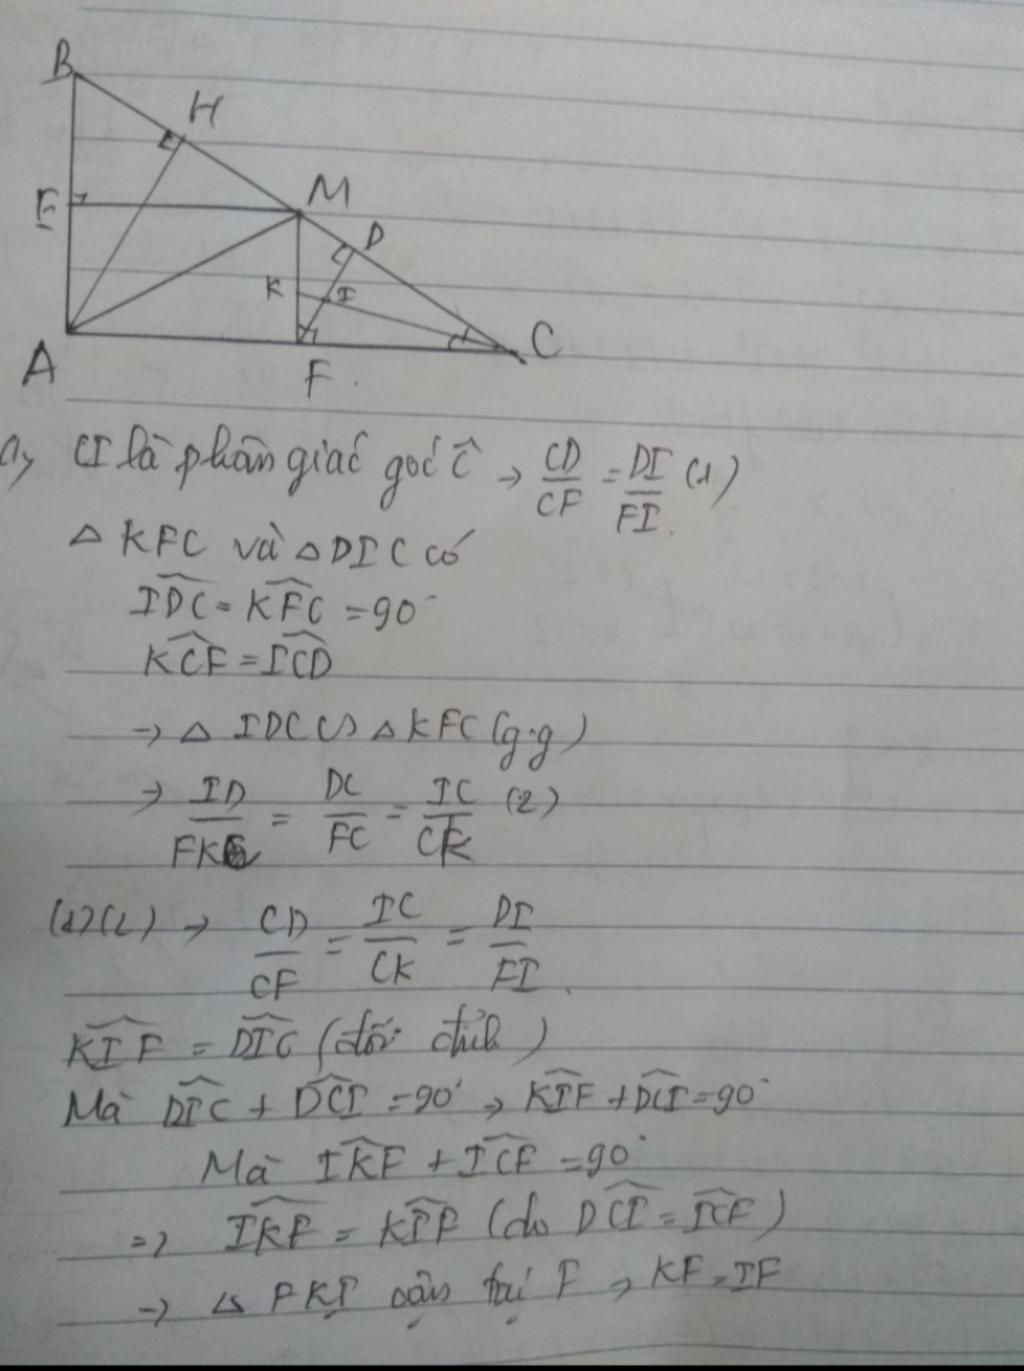 B
H
E
M
D
K
I
A
F
C
a, CI là phân giác góc Ĉ → CD/CF = DI/FI (1)
△ KFC và △ DIC có
IDC = KFC = 90°
KCF = ICD
→ △ IDC ∽ △ KFC (g.g)
→ ID/FK = DC/FC = IC/CK (2)
(1)(2) → CD/CF = IC/CK = DI/FI
KIF = DIC (đối đỉnh)
Mà DIC + DCI = 90° → KIF + DCI = 90°
Mà IKF + ICF = 90°
=> IKF = KIF (do DCI = ICF)
→ △ FKI cân tại F → KF = IF